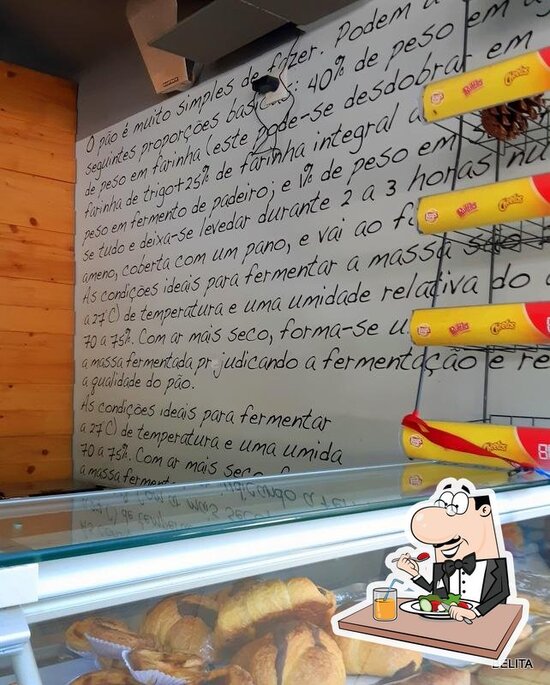 O pão é muito simples de fazer. Podem a
seguintes proporções : 40% de peso em
de peso em farinha (este pode-se desdobrar em
farinha de trigo+25% de farinha integral a
peso em fermento de padeiro; e 1% de peso em
se tudo e deixa-se levedar durante 2 a 3 horas nu
ameno, coberta com um pano, e vai ao
As condições ideais para fermentar a massa são
a 27°C) de temperatura e uma umidade relativa do
70 a 75%. Com ar mais seco, forma-se u
a massa fermentada pr judicando a fermentação e re
a qualidade do pão.
As condições ideais para fermentar
a 27°C) de temperatura e uma umida
70 a 75%. Com ar mais seco
a massa fermentada
Cheetos
Cheetos
Cheetos
BELITA